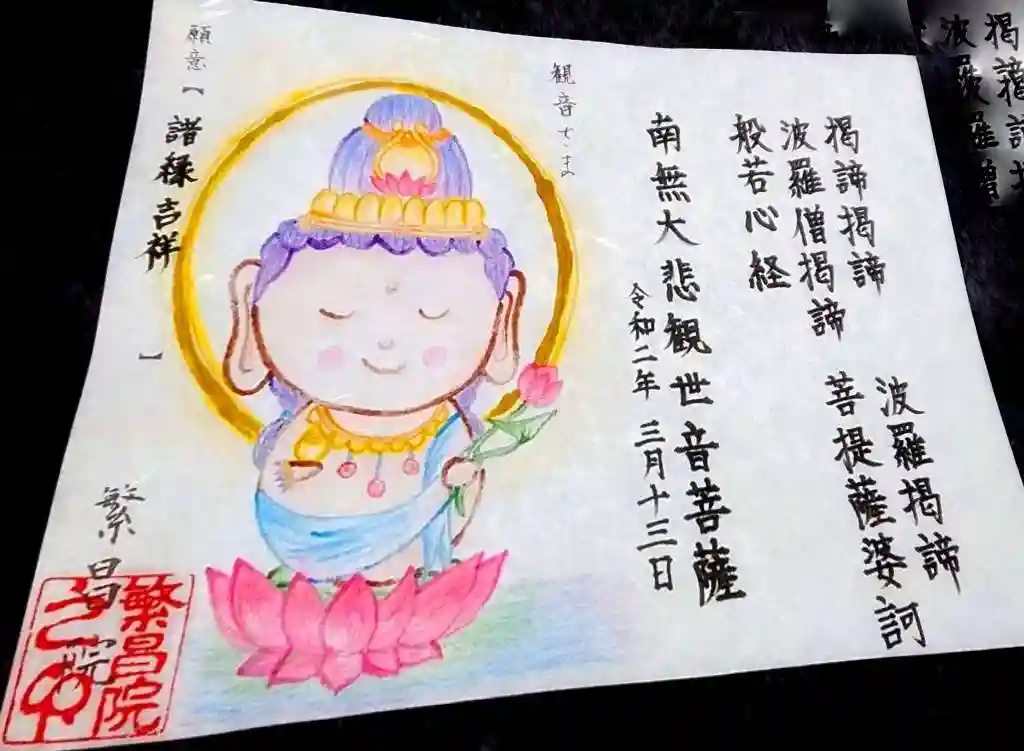 掲諦掲諦 波羅掲諦
波羅僧掲諦 菩提薩婆訶
般若心経
南無大悲観世音菩薩
令和二年 三月十三日
観音さま
願意【諸禄吉祥】
繁昌院
繁昌院